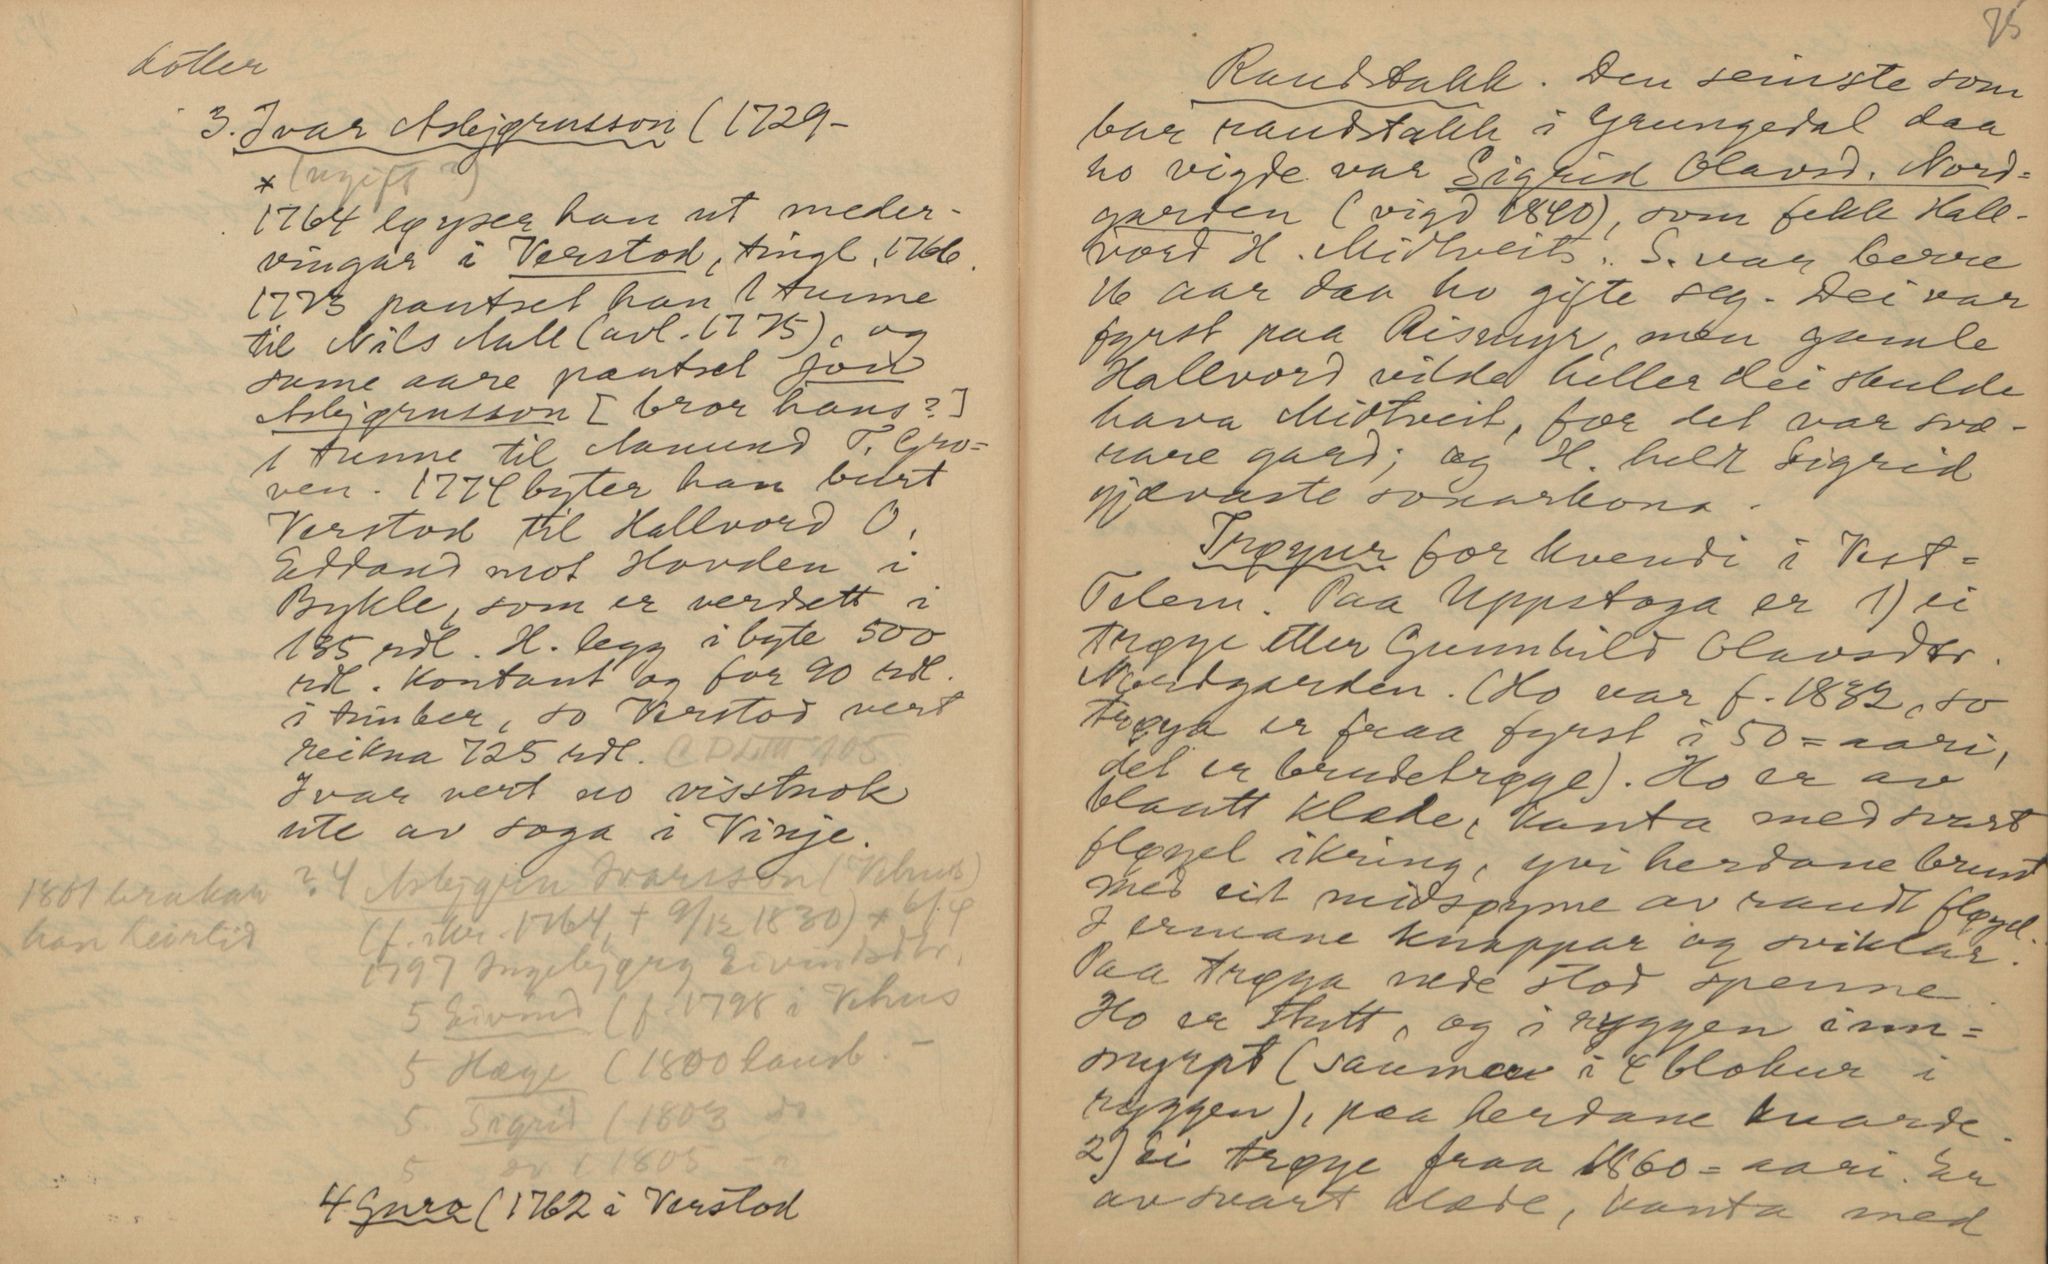 dotter
3. Ivar Asbjørnsson (1729-
* (ugift?)
1764 løyser han ut meder-
vingar i Verstod, tingl. 1766.
1773 pantset han 1 tunne
til Nils Aall (avl. 1775), og
same aare pantset Jon
Asbjørnsson [bror hans?]
1 tunne til Aamund T. Gro=
ven. 1774 byter han burt
Verstod til Hallvord O.
Eddand mot Hovden i
Bykle, som er verdsett i
135 rdl. H. legg i byte 500
rdl. kontant og for 90 rdl.
i timber, so Verstod vert
reikna 725 rdl.
Ivar vert no visstnok
ute av soga i Vinje.
? 4 Asbjørn Ivarsson (Vehus)
1801 brukar
han Leirlid
(f. ikr. 1764, † 9/12 1830) * 6/4
1797 Ingebjørg Eivindsdtr.
5 Eivind (f. 1798 i Vehus
5 Hæge (1800 Haub. -
5. Sigrid (1803 do
5 1805
4 Guro (1762 i Verstod
75
Raudstakk. Den seinste som
bar raudstakk i Grungedal daa
ho vigde var Sigrid Olavsd. Nord=
garden (vigd 1840), som fekk Hall-
vord H. Midtveit. S. var berre
16 aar daa ho gifte seg. Dei var
fyrst paa Rismyr, men gamle
Hallvord vilde heller dei skulde
hava Midtveit, for det var svæ-
rare gard; og H. heldt Sigrid
gjævaste sonarkona.
Trøyur for kvende i Vest=
Telem. Paa Uppstoga er 1) ei
trøye etter Gunnhild Olavsdtr.
Nordgarden. (Ho var f. 1832, so
trøya er fraa fyrst i 50=aari,
det er brudetrøye). Ho er av
blaatt klæde, kanta med svart
fløyel ikring, yvi herdane brunt
med eit midsøyme av raudt fløyel.
I ermane knappar og sviklar.
Paa trøya nede stod spenne.
Ho er stutt, og i ryggen inn=
snyrpt (saumar i 4 blokur i
ryggen), paa herdane kvarde.
2) Ei trøye fraa 1860=aari. Er
av svart klæde, kanta med